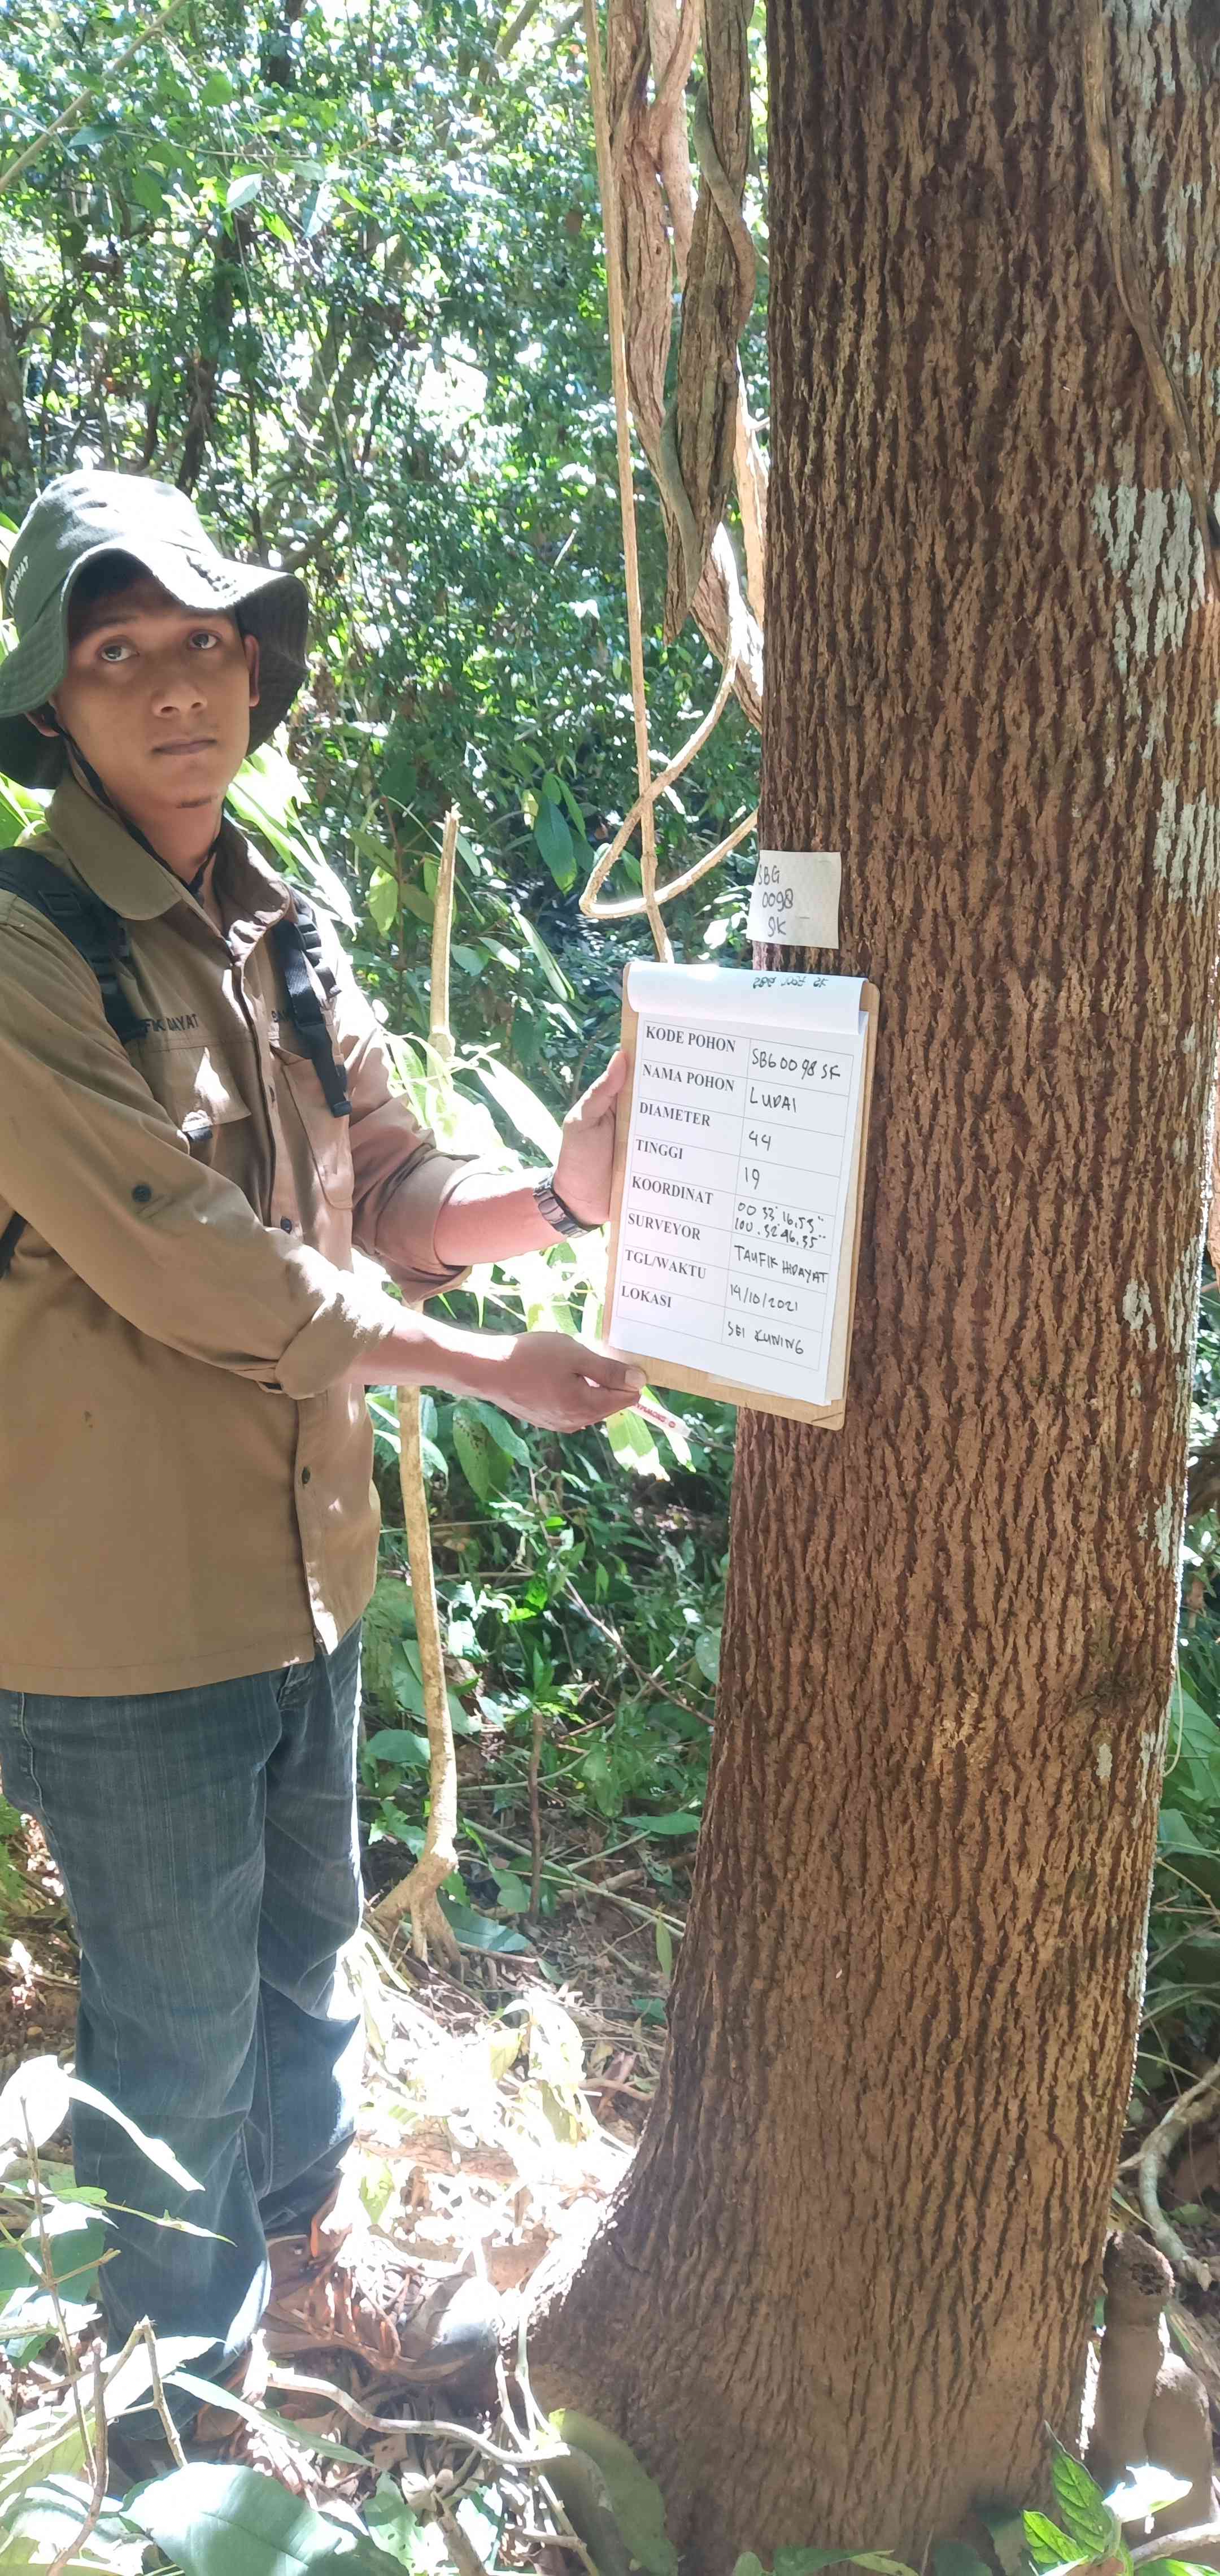 SBG
0098
SK
KODE POHON SBG0098 SK
NAMA POHON LUDAI
DIAMETER 44
TINGGI 19
KOORDINAT 00 33' 16,53"
100. 32' 46.35"
SURVEYOR TAUFIK HIDAYAT
TGL/WAKTU 14/10/2021
LOKASI SEI KUNING